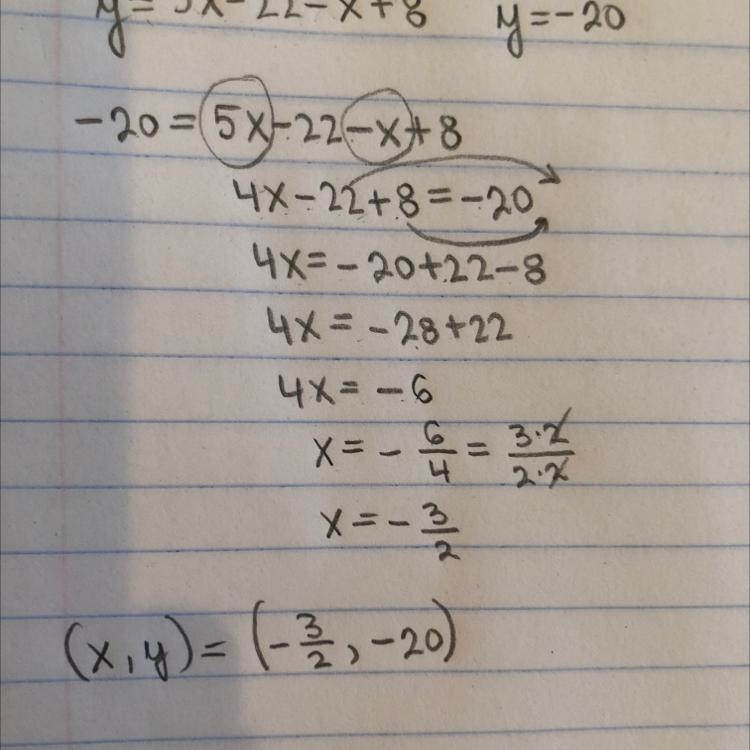 y = 5x - 22 - x + 8    y = -20
-20 = 5x - 22 - x + 8
4x - 22 + 8 = -20
4x = -20 + 22 - 8
4x = -28 + 22
4x = -6
x = - 6/4 = 3·2/2·2
x = - 3/2
(x, y) = (- 3/2, -20)